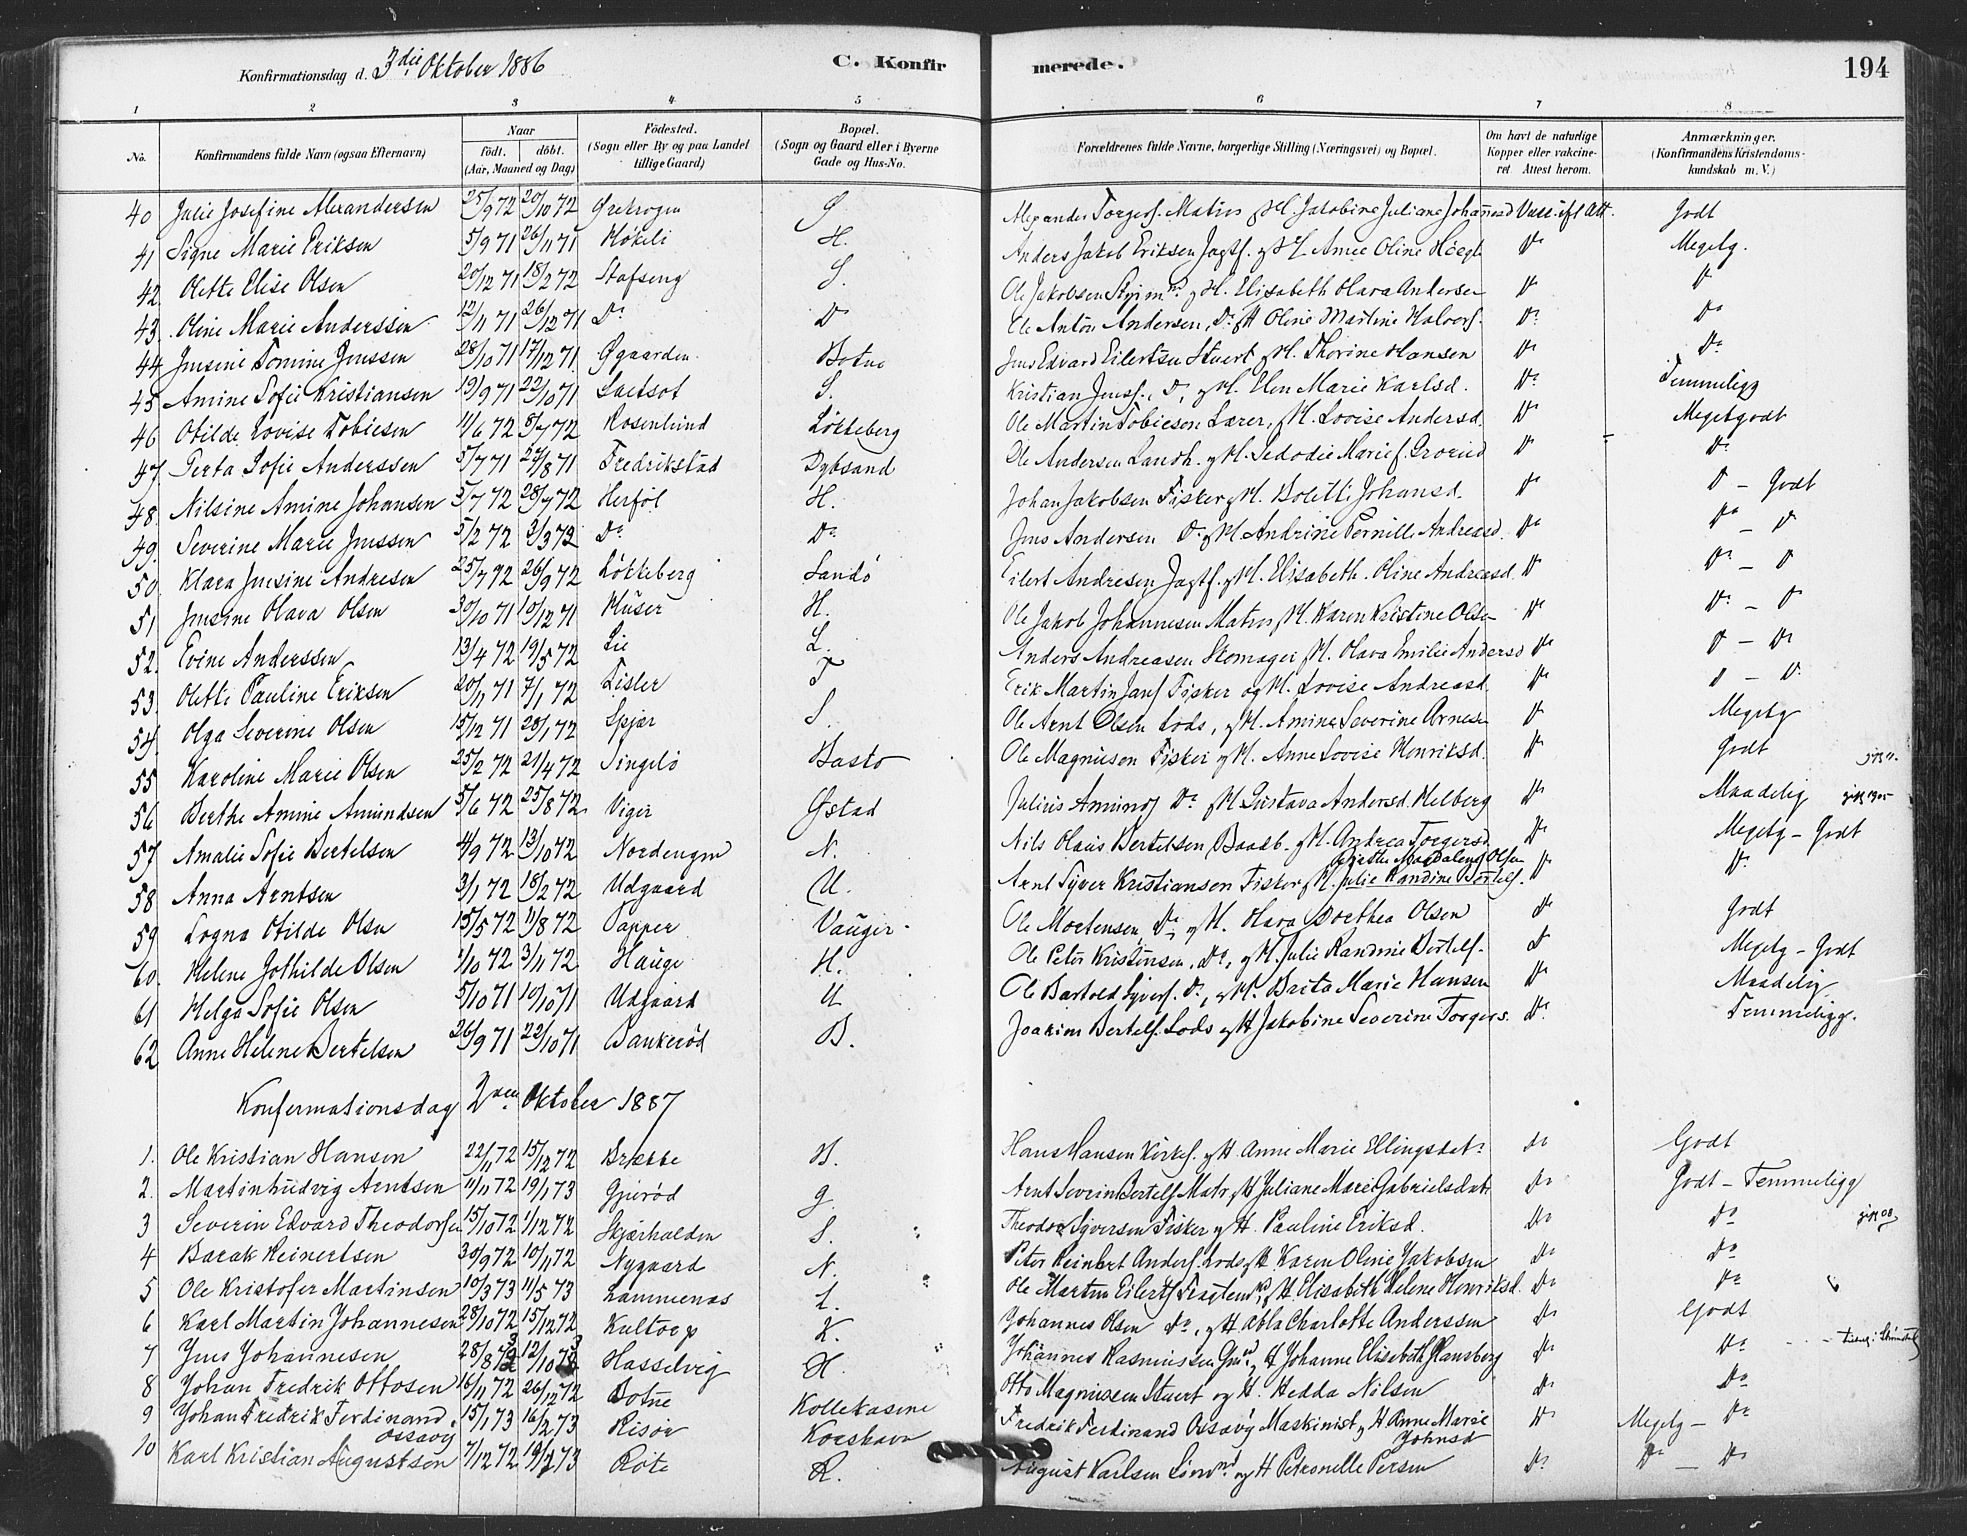 Konfirmationsdag d. 3die Oktober 1886 C. Konfirmerede. 194
1 2 3 4 5 6 7 8
No. Konfirmandens fulde Navn (ogsaa Efternavn) Naar födt. döbt. (Aar, Maaned og Dag) Födested. (Sogn eller By og paa Landet tillige Gaard) Bopæl. (Sogn og Gaard eller i Byerne Gade og Hus-No. Forældrenes fulde Navne, borgerlige Stilling (Næringsvei) og Bopæl. Om havt de naturlige Kopper eller vakcineret. Attest herom. Anmærkninger. (Konfirmandens Kristendomskundskab m. V.)
40 Julie Josefine Alexandersen 25/9 72 20/10 72 Ørekrogen S Alexander Torgers. Matros og H. Jakobine Juliane Johannesd Vacc. ifl Att. Godt
41 Signe Marie Eriksen 5/9 71 26/11 71 Kökeli H. Anders Jakob Eriksen Jagtf. og H. Amee Oline Höegh Do Megetg.
42 Olette Elise Olsen 20/12 71 18/2 72 Stafseng S. Ole Jakobsen Styrmd. og H. Elisabeth Olava Andersen Do Do
43 Oline Marie Anderssen 12/11 71 26/12 71 Do Do Ole Anton Andersen, Do og H Oline Martine Halvors. Do Do
44 Jensine Tomine Jenssen 28/10 71 17/12 71 Øgaarden Botne Jens Edvard Eilertsen Stuert og H. Thorine Hansen Do Do
45 Amine Sofie Kristiansen 19/9 71 22/10 71 S. Kristian Jenss., Do, og H. Elen Marie Karlsd. Do Temmeligg
46 Otilde Lovise Tobiesen 11/6 72 8/7 72 Rosenlund Lökkeberg Ole Martin Tobiesen Lærer, og H. Lovise Andersd. Do Megetgodt
47 Perta Sofie Anderssen 5/7 71 27/8 71 Fredrikstad Dybsand Ole Andersen Landh. og H. Do Do
48 Nilsine Amine Johansen 5/7 72 28/7 72 Herföl H. Johan Jakobsen Fisker og H. Bolette Johansd. Do Do - Godt
49 Severine Marie Jenssen 5/2 72 2/3 72 Do Do Jens Andersen Do og H Andrine Pernille Andreasd. Do Do - Do
50 Klara Jensine Andresen 25/7 72 26/9 72 Lökkeberg Sandö Eilert Andresen Jagtf. og H. Elisabeth Oline Andreasd. Do Do - Do
51 Jensine Olava Olsen 30/10 71 10/12 71 Huser H. Ole Jakob Johannesen Matros, og H. Karen Kristine Olsen Do Do - Do
52. Evine Anderssen 13/4 72 19/5 72 Lie L. Anders Andreasen Skomager og H. Olava Emilie Andersd Do Do - Do
53. Olette Pauline Eriksen 20/11 71 7/1 72 Tisler T Erik Martin Jans. Fisker og H. Lovise Andreasd. Do Do - Do
54. Olga Severine Olsen 15/12 71 28/1 72 Spjær S. Ole Arnt Olsen Lods, og H. Amine Severine Arnesen Do Megetg
55 Karoline Marie Olsen 25/2 72 21/4 72 Singelö Basto Ole Magnusen Fisker og H. Anne Lovise Henriksd. Do Godt
56 Berthe Amine Amundsen 5/6 72 25/8 72. Viger Østad Julius Amunds. Do og H. Gustava Andersd. Helberg Do Maadelig gift 1905
57 Amalie Sofie Bertelsen 4/9 72 13/10 72 Nordengen N. Nils Olaus Bertelsen Baadb. og H. Andrea Torgersd. Do Megetg - Godt
Grethe Magdalene Olsen
58 Anna Arntsen 3/1 72 18/2 72 Udgaard U. Arnt Syver Kristiansen Fisker og H. Julie Randine Bertels. Do Do
59 Logna Otilde Olsen 15/5 72 11/8 72 Papper Vauger Ole Mortensen, Do og H. Olava Dorthea Olsen Do Godt
60. Helene Jothilde Olsen 1/10 72 3/11 72 Hauge H. Ole Peter Kristensen, Do, og H. Julie Randine Bertels. Do Megetg - Godt
61 Helga Sofie Olsen 5/10 71 10/10 71 Udgaard U Ole Bartold Syvers. Do, og H. Brita Marie Hansen Do Maadelig
62 Anne Helene Bertelsen 26/9 71 22/10 71 Bankeröd B. Joakim Bertels. Lods og H Jakobine Severine Torgers. Do Temmeligg.
Konfermationsdag 2den Oktober 1887
1. Ole Kristian Hansen 22/11 72 15/12 72 Brække B. Hans Hansen Kirkes. og H. Anne Marie Ellingsdat. Do Godt
2. Martin Ludvig Arntsen 11/11 72 19/1 73 Gjeröd G. Arnt Severin Bertels Matr. og H Juliane Marie Gabrielsdat. Do Godt - Temmeligg
3 Severin Edvard Theodorsen 15/10 72 1/12 72 Skjærhalden S. Theodor Syversen Fisker og H. Pauline Eriksd. Do Do gift 08
4 Barak Reinertsen 30/9 72 10/11 72 Nygaard N. Peter Reinert Anders. Lods og H. Karen Oline Jakobsen Do Do
5 Ole Kristofer Martinsen 10/3 73 11/5 73 Lammenæs L. Ole Martin Eilerts Fragtemd, og H Elisabeth Helene Henriksd. Do Do
6 Karl Martin Johannesen 28/10 72 15/12 72 Kultorp K. Johannes Olsen Do, og H Abla Charlotte Anderssen Do Godt
7 Jens Johannesen 28/8 73 12/10 73 Hasselvig H. Johannes Rasmussen Grmd, H Johanne Elisebeth Hansberg Do Do
8 Johan Fredrik Ottosen 16/11 72 26/12 72 Botne Kollekasene Otto Magnussen Stuert og H. Hedda Nilsen Do Do
9 Johan Fredrik Ferdinand Ossavy 15/1 73 16/2 73 Risör Korshavn Fredrik Ferdinand Ossavy Maskinist og H Anne Marie Johnsd Do Megetg - Do
10 Karl Kristian Augustsen 7/12 72 19/1 73 Röte R. August Karlsen Sömd. og H Petronelle Persen Do Do - Do